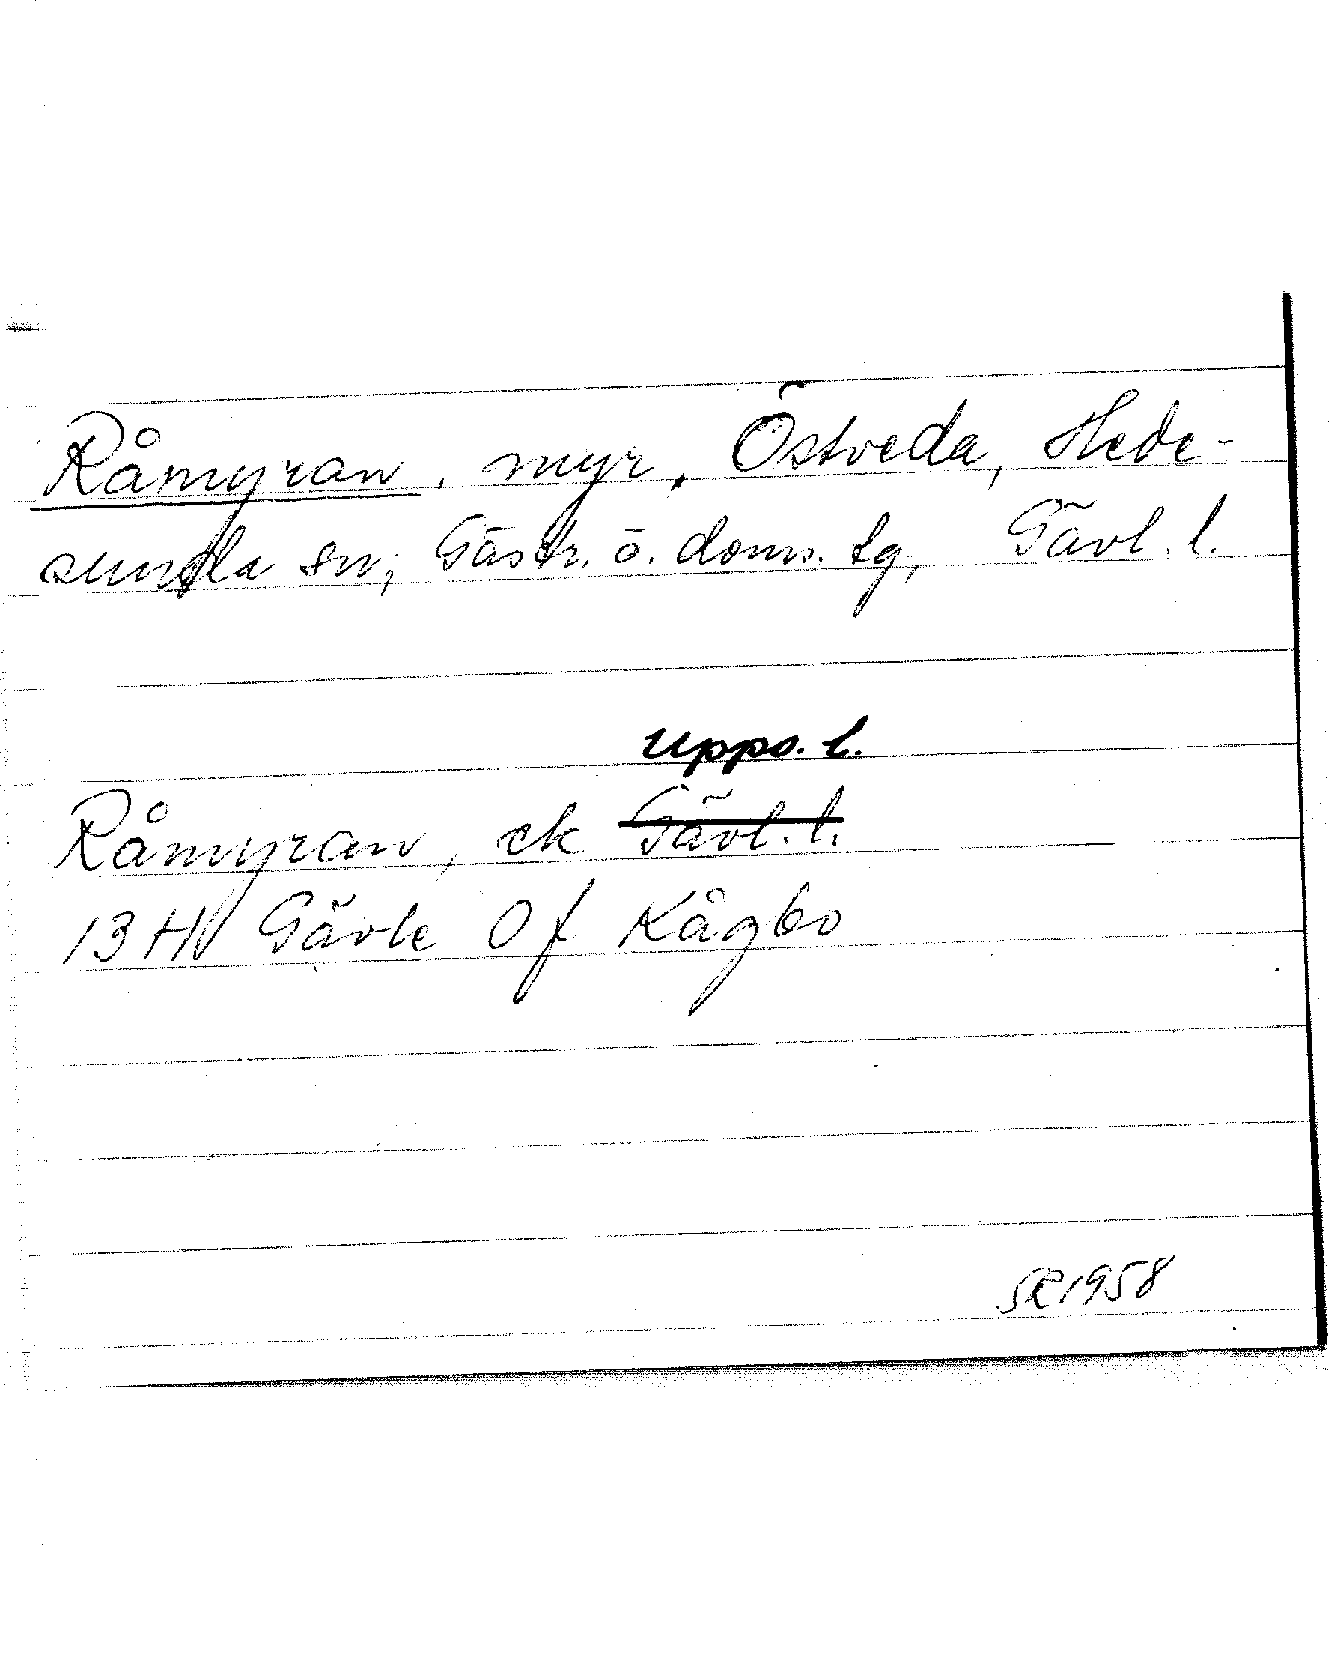 Råmyran, myr, Östveda, Hede-
sunda sn, Gästr. ö. doms. tg, Gävl. l.
Upps. l.
Råmyran, ek Gävl. l.
13 H Gävle 0f Kågbo
SR 1958